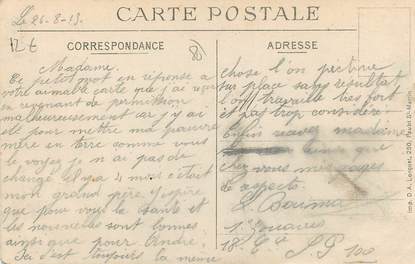 CARTE POSTALE
Le 26-8-15
12 €
CORRESPONDANCE
ADRESSE
Madame.
Ce petit mot en réponse a
votre aimable carte que j'ai reçu
en revenant de permission
malheureusement car j'y ai
été pour mettre ma pauvre
mère en terre comme vous
le voyez je n ai pas de
4 mois c'était
mon grand père. J'espère
que pour vous la santé et
les nouvelles sont bonnes
ainsi que pour André.
Ici c'est toujours la même
chose l'on piétine
sur place sans résultat
l'on travaille très fort
et pas trop considéré.
madame
que
chez vous mes
1er Zouaves
18e Cie S P 100
Imp. D. A. Longuet, 250, Faub. St-Martin